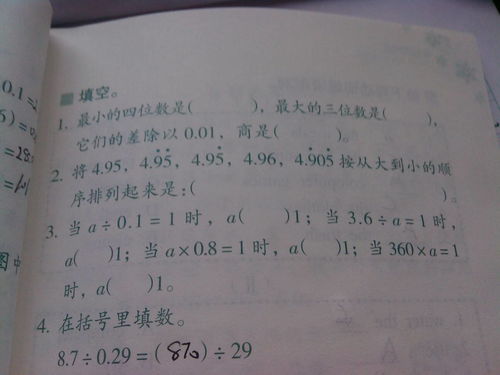 ■ 填空。
1. 最小的四位数是(　　)，最大的三位数是(　　)，
它们的差除以 0.01，商是(　　)。
2. 将 4.95，4.9̇5̇，4.95̇，4.96，4.9̇05̇ 按从大到小的顺
序排列起来是：(　　)。
3. 当 a÷0.1=1 时，a(　　)1；当 3.6÷a=1 时，
a(　　)1；当 a×0.8=1 时，a(　　)1；当 360×a=1
时，a(　　)1。
4. 在括号里填数。
8.7÷0.29=(870)÷29